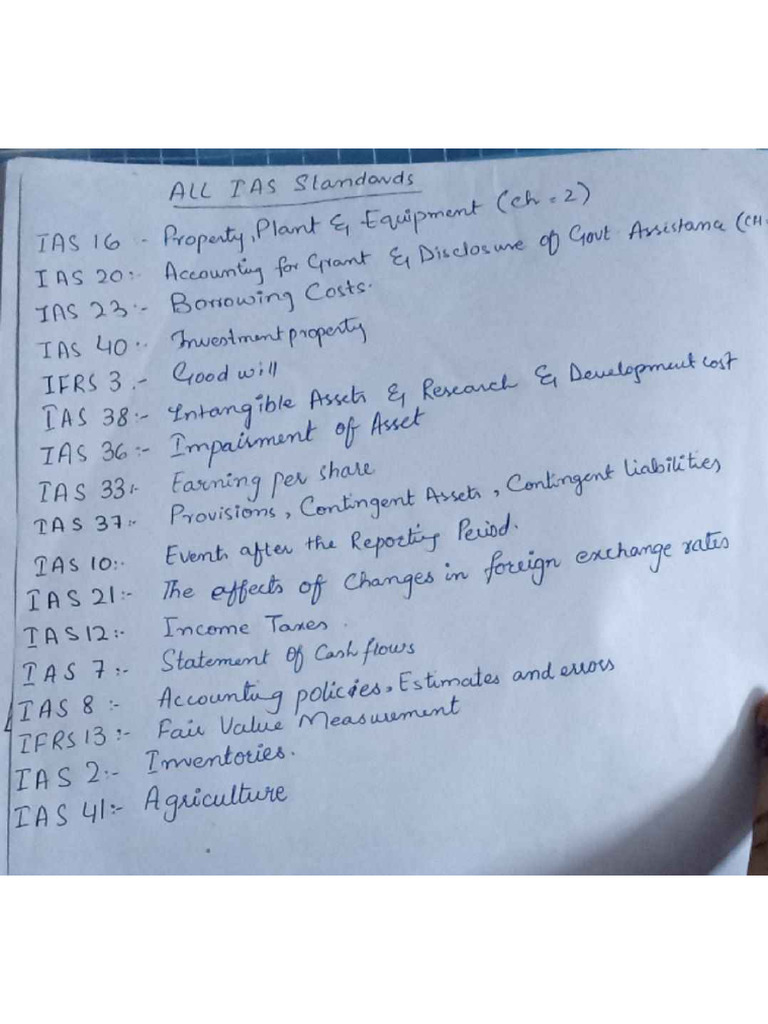 ALL IAS Standards
IAS 16 - Property, Plant & Equipment (Ch = 2)
IAS 20:- Accounting for Grant & Disclosure of Govt Assistance (CH
IAS 23:- Borrowing Costs.
IAS 40:- Investment property
IFRS 3 :- Good will
IAS 38:- Intangible Assets & Research & Development cost
IAS 36:- Impairment of Asset
IAS 33:- Earning per share
IAS 37:- Provisions, Contingent Assets, Contingent liabilities
IAS 10:- Events after the Reporting Period.
IAS 21:- The effects of Changes in foreign exchange rates
IAS 12:- Income Taxes.
IAS 7:- Statement Of Cash flows
IAS 8:- Accounting policies, Estimates and errors
IFRS 13:- Fair Value Measurement
IAS 2:- Inventories.
IAS 41:- Agriculture